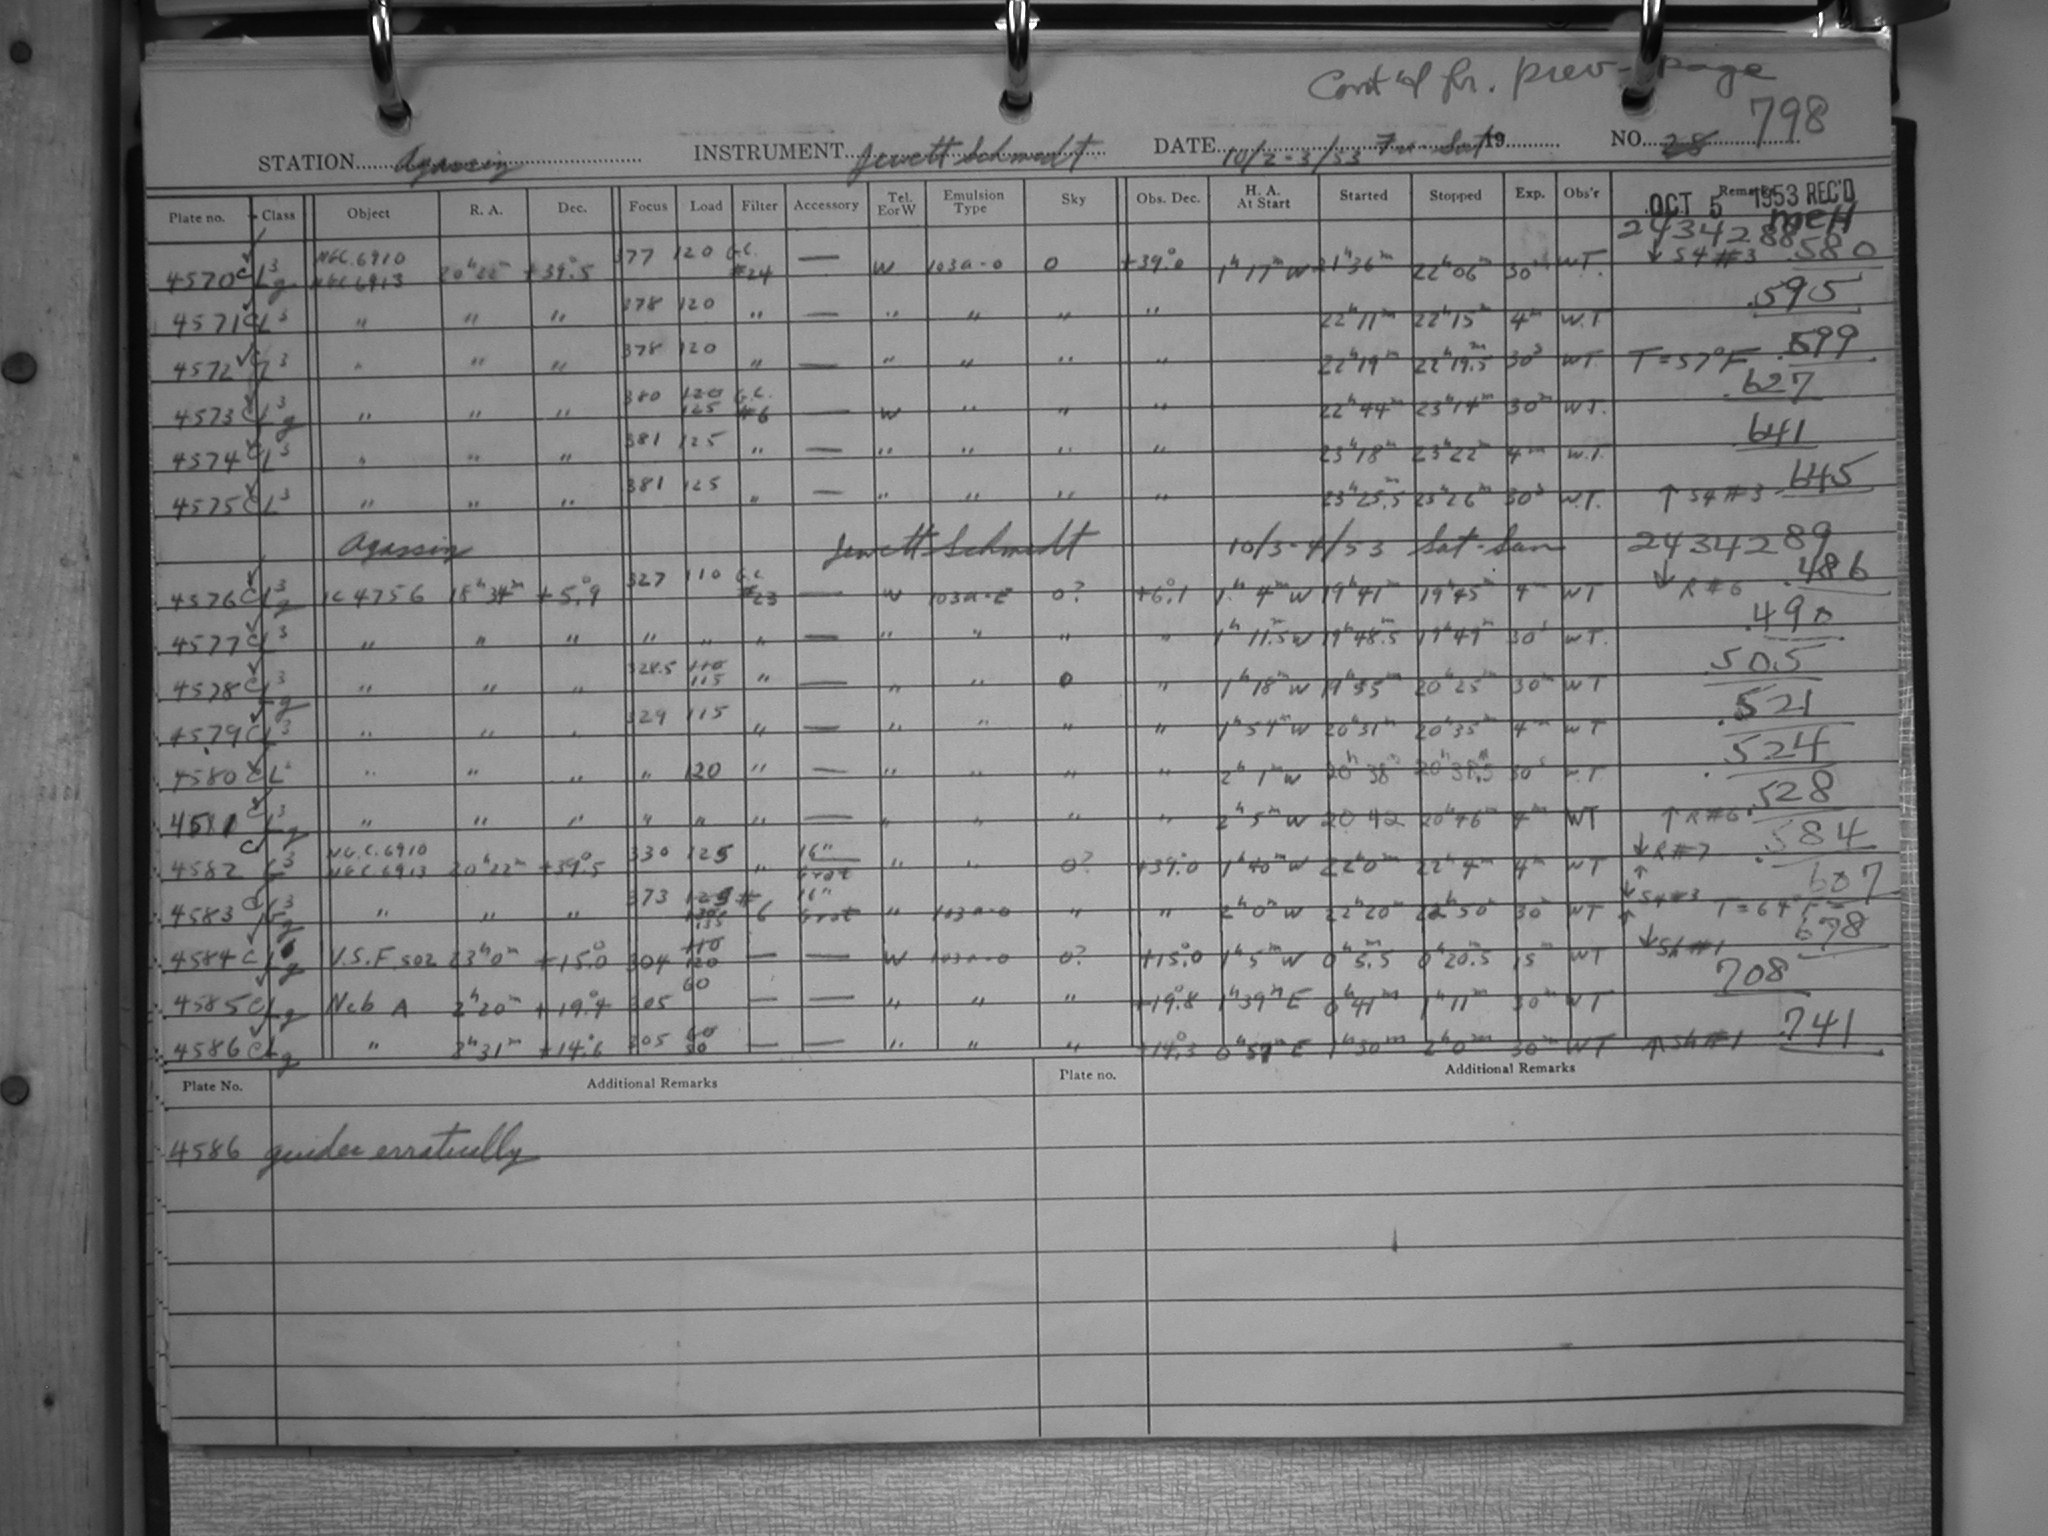 Cont'd fr. prev. page
STATION Agassiz INSTRUMENT Jewett Schmidt DATE 10/2-3/53 Sat 19 NO. 28 798
Plate no. Class Object R. A. Dec. Focus Load Filter Accessory Tel. E or W Emulsion Type Sky Obs. Dec. H. A. At Start Started Stopped Exp. Obs'r Remarks
OCT 5 1953 REC'D
MCH
2434288
4570 NGC 6910 NGC 6913 20h22m +39°.5 377 120 G.C. #24 — W 103a-0 0 +39°.0 1h17m W 21h36m 22h06m 30m WT. ↓ S4 #3 .580
4571 " " " 378 120 " — " " " " 22h11m 22h15m 4m W.T .595
4572 " " " 378 120 " — " " " " 22h19m 22h19.5m 30s WT. T = 57°F .599
4573 " " " 380 120 125 G.C. #6 — W " " " 22h44m 23h14m 30m WT. .627
4574 " " " 381 125 " — " " " " 23h18m 23h22m 4m W.T. .641
4575 " " " 381 125 " — " " " " 23h25.5m 23h26m 30s W.T. ↑ S4 #3 .645
Agassiz Jewett Schmidt 10/3-4/53 Sat-Sun 2434289
4576 IC 4756 18h34m +5°.9 327 110 G.C. #23 — W 103a-E 0? +6°.1 1h4m W 19h41m 19h45m 4m WT ↓ R #6 .486
4577 " " " " " " — " " " " 1h11.5m W 19h48.5m 19h49m 30s WT. .490
4578 " " " 328.5 110 115 " — " " 0 " 1h18m W 19h55m 20h25m 30m WT .505
4579 " " " 329 115 " — " " " " 1h54m W 20h31m 20h35m 4m WT .521
4580 " " " " 120 " — " " " " 2h1m W 20h38m 20h38.5m 30s W.T. .524
4581 " " " " " " — " " " " 2h5m W 20 42 20h46m 4m WT ↑ R #6 .528
4582 N.G.C. 6910 NGC 6913 20h22m +39°.5 330 125 " 16" Grat " " 0? +39°.0 1h40m W 22h0m 22h4m 4m WT ↓ R #7 ↑ .584
4583 " " " 373 # 6 16" Grat " 103a-0 " " 2h0m W 22h20m 22h50m 30m WT ↓ S4 #3 ↑ T = 64°F .607
4584 V.S.F. 502 23h0m +15°.0 304 110 120 — — W 103a-0 0? +15°.0 1h5m W 0h5.5m 0h20.5m 15m WT ↓ Sh #1 .678
4585 Neb A 2h20m +19°.4 305 60 — — " " " +19°.8 1h39m E 0h41m 1h11m 30m WT .708
4586 " 2h31m +14°.6 305 60 50 — — " " " +14°.3 0h57m E 1h30m 2h0m 30m WT ↑ Sh #1 .741
Plate No. Additional Remarks Plate no. Additional Remarks
4586 guider erratically